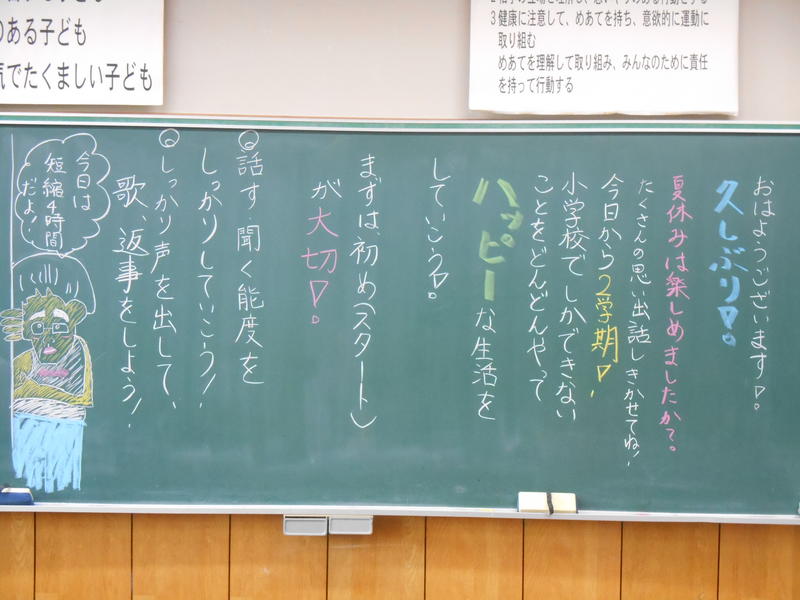 のある子ども
気でたくましい子ども
3 健康に注意して、めあてを持ち、意欲的に運動に
取り組む
めあてを理解して取り組み、みんなのために責任
を持って行動する
おはようございます!。
久しぶり!。
夏休みは楽しめましたか?。
たくさんの思い出話しきかせてね!
今日から2学期!
小学校でしかできない
ことをどんどんやって
ハッピーな生活を
していこう!。
まずは、初め(スタート)
が大切!。
◎話す聞く態度を
しっかりしていこう!
◎しっかり声を出して、
歌、返事をしよう!
今日は
短縮4時間
だよ!